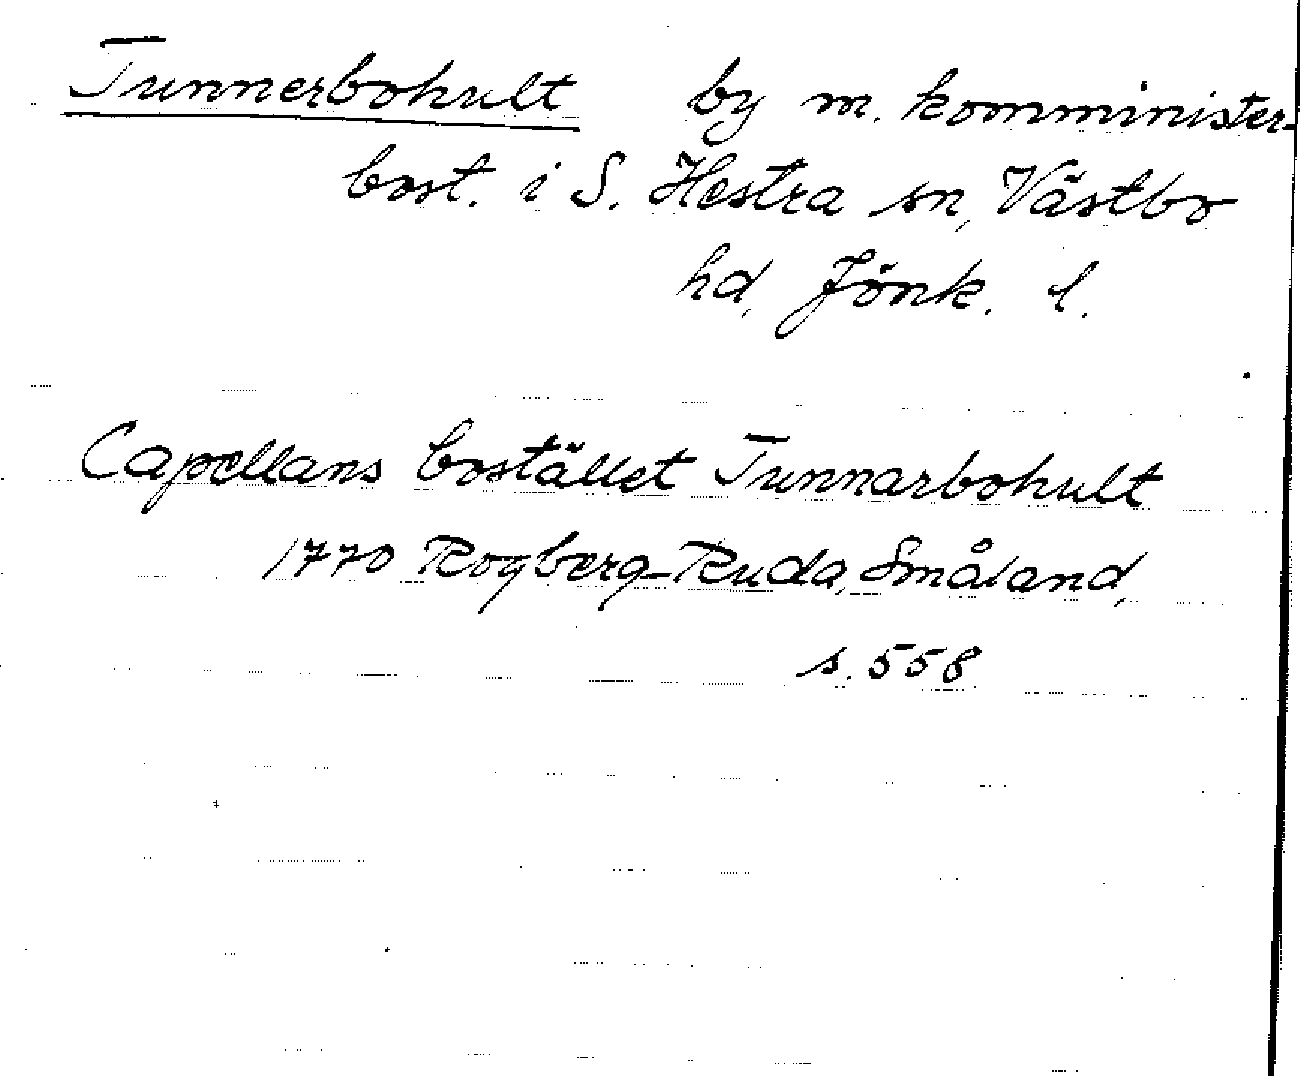 Tunnerbohult by m. komminister-
bost. i S. Hestra sn, Västbo
hd, Jönk. l.
Capellans bostället Tunnarbohult
1770 Rogberg-Ruda, Småland,
s. 558